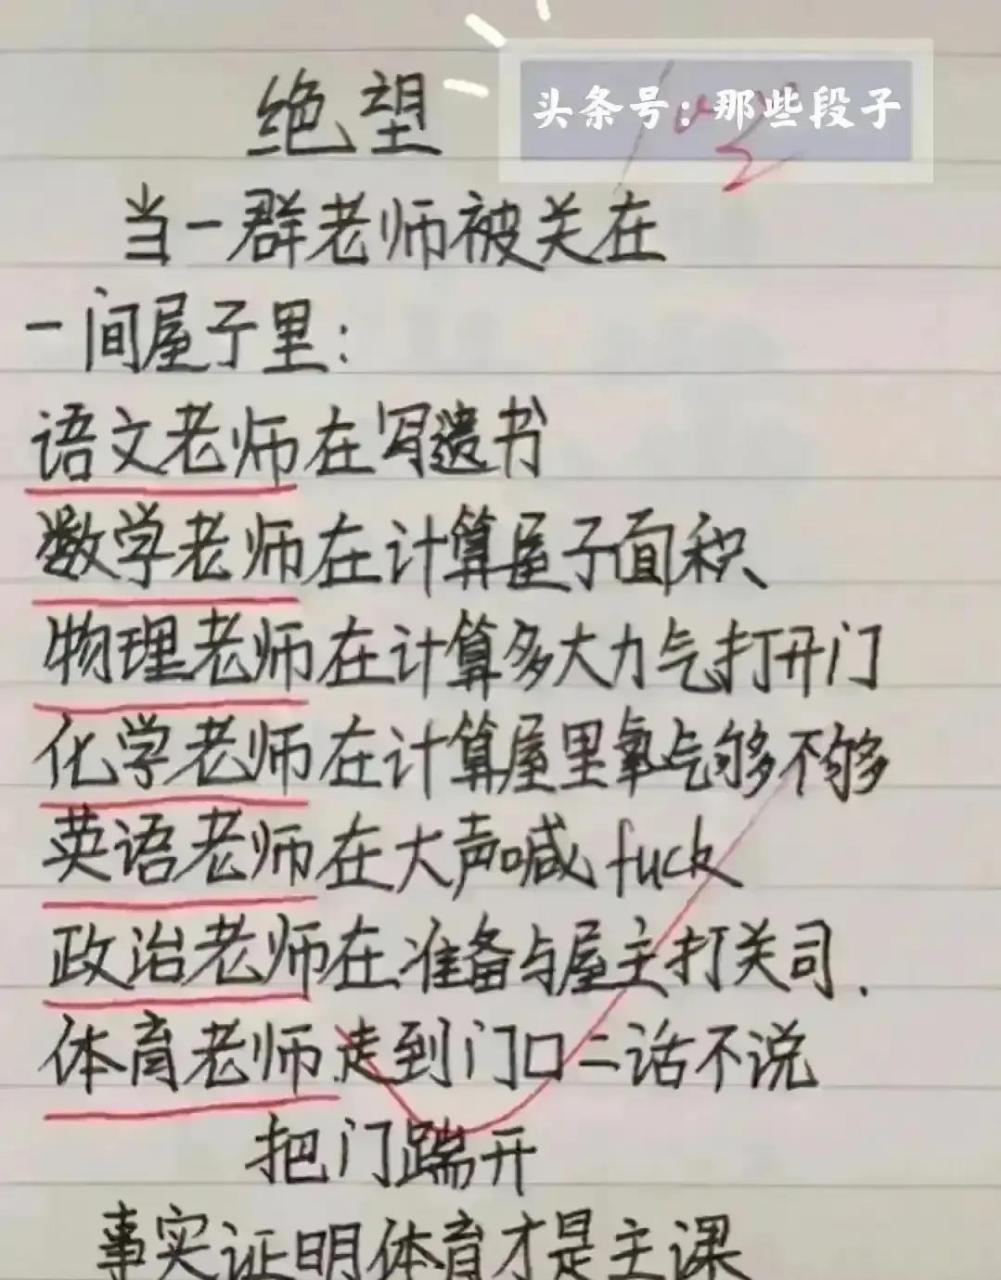 头条号:那些段子
绝望
当一群老师被关在
一间屋子里:
语文老师在写遗书
数学老师在计算屋子面积
物理老师在计算多大力气打开门
化学老师在计算屋里氧气够不够
英语老师在大声喊fuck
政治老师在准备与屋主打关司.
体育老师走到门口二话不说
把门踹开
事实证明体育才是主课